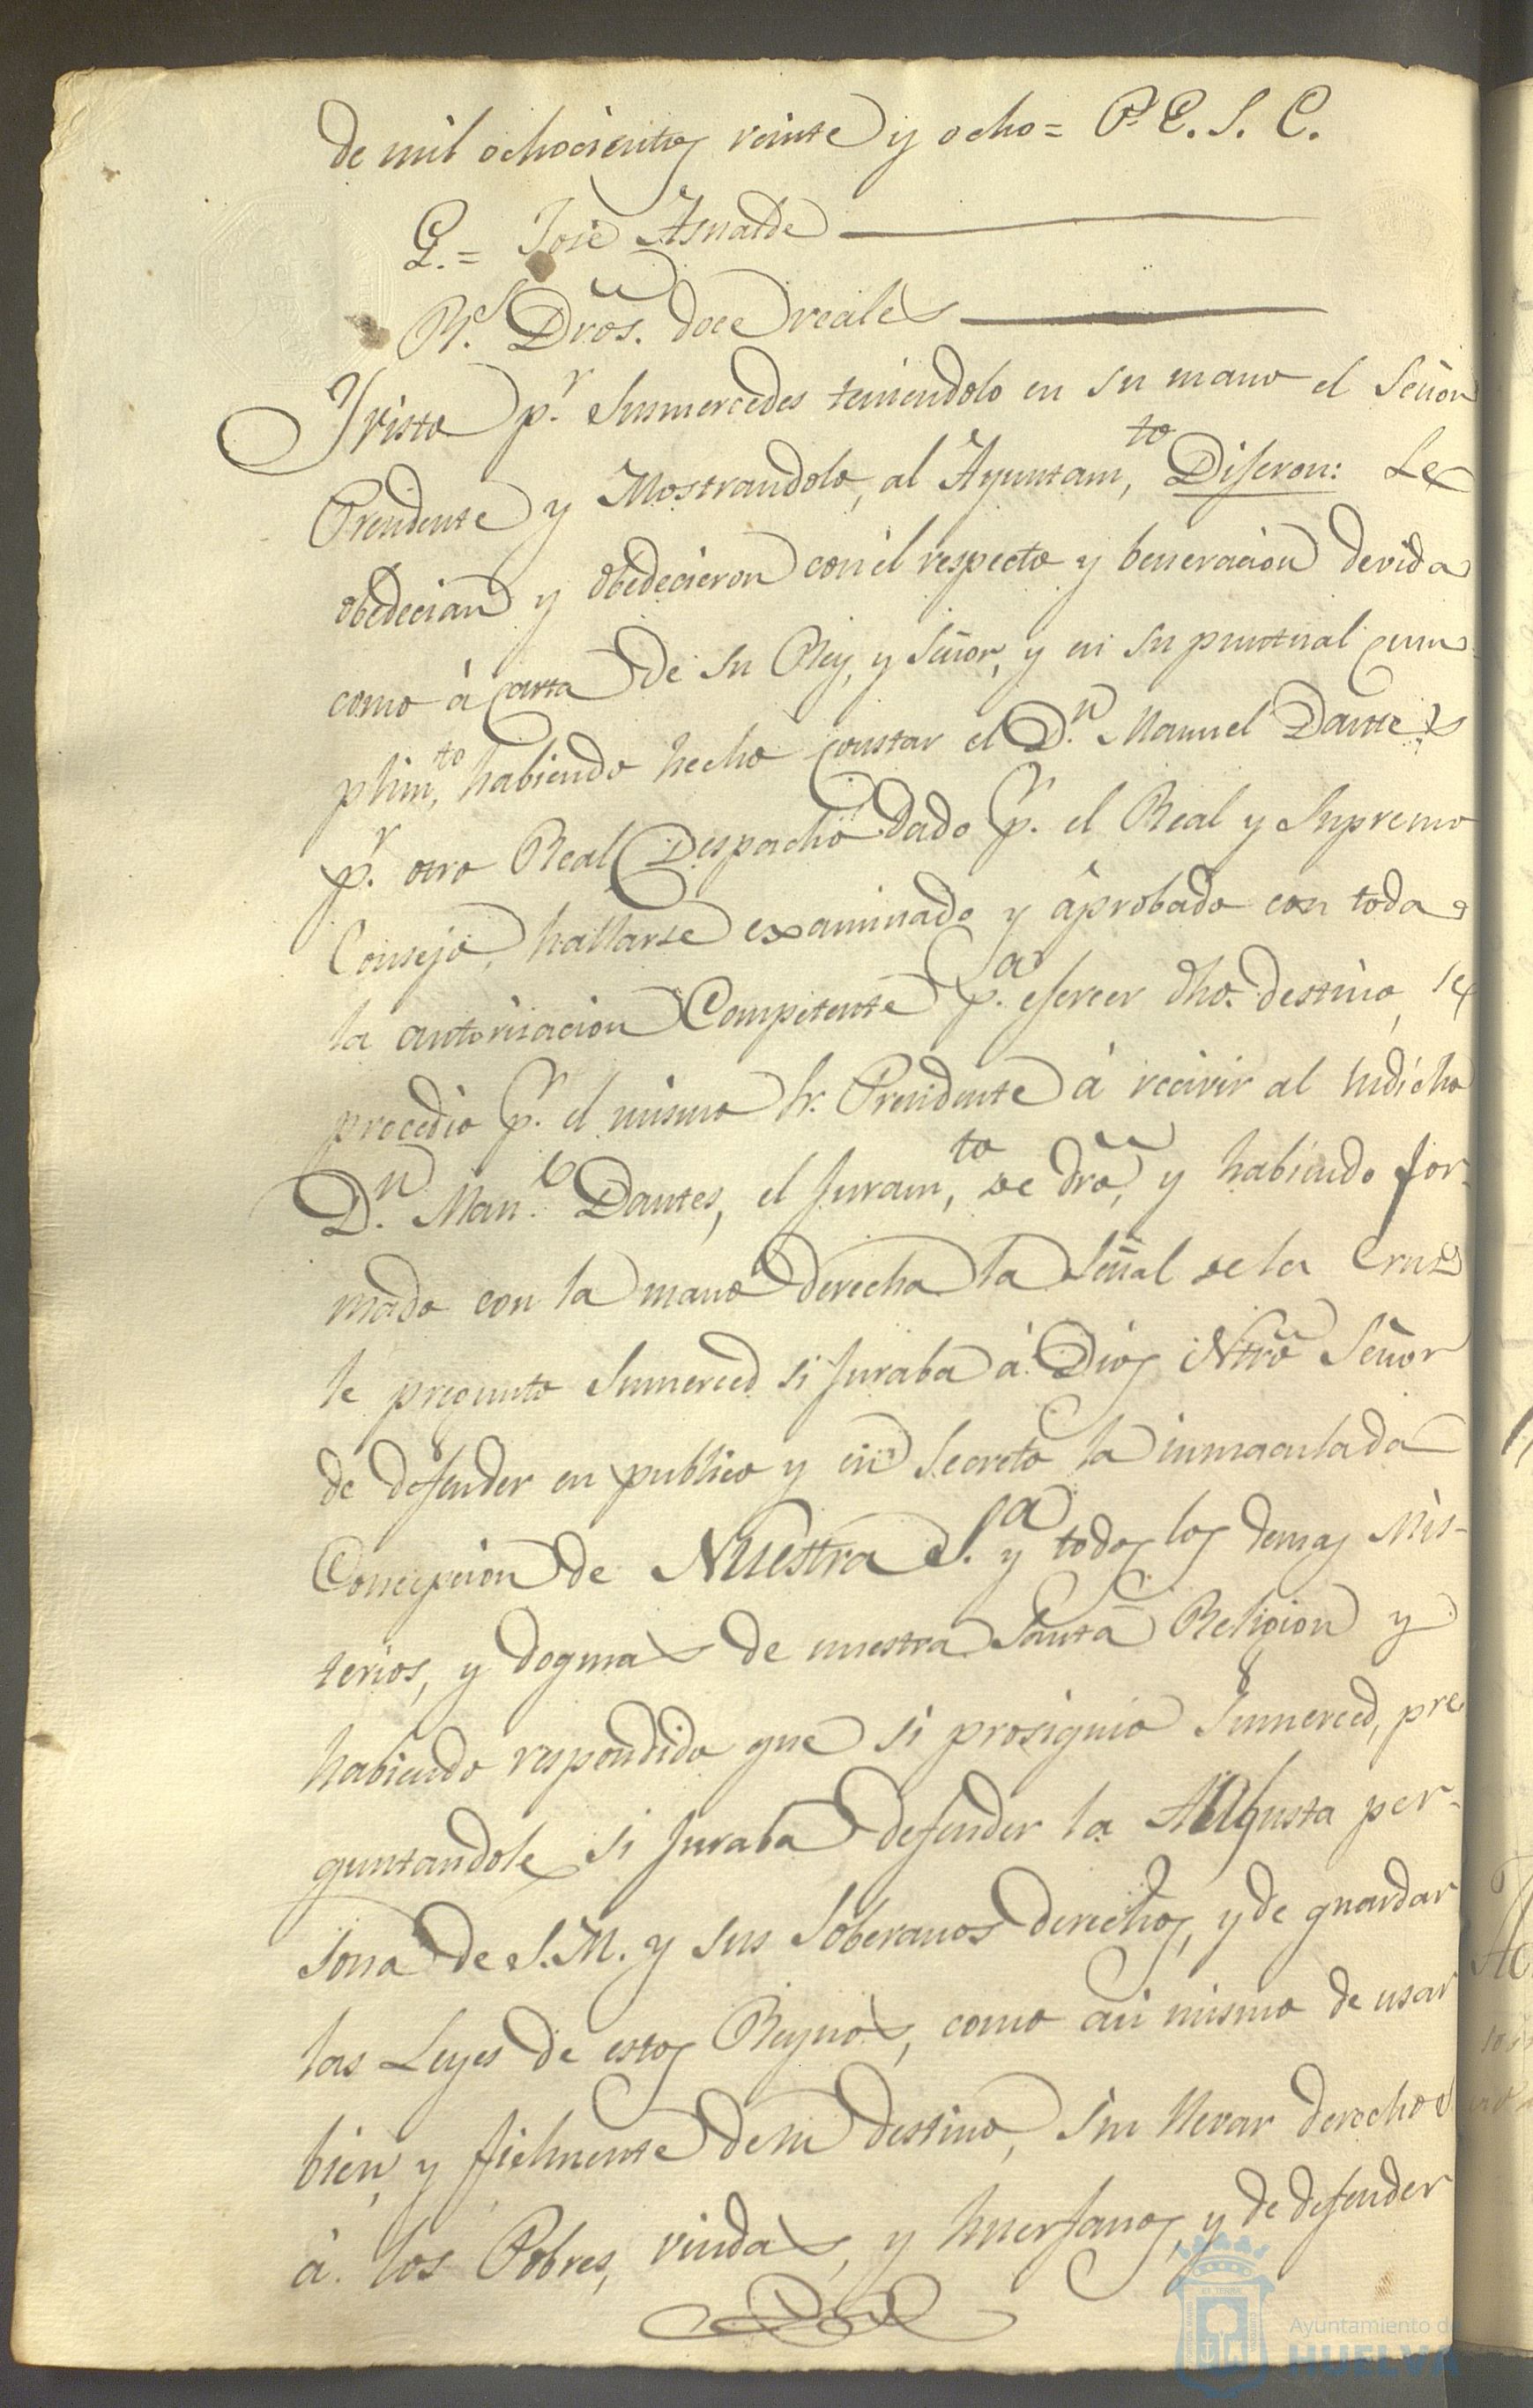 de mil ochocientos veinte y ocho = P.r E. S. C.
G. = José Asnalde
R.s Dros. doce reales
Y visto p.r Sumercedes teniendolo en su mano el Señor
Presidente y Mostrandolo, al Ayuntam.to Diseron: Le
obedecian y obedecieron con el respecto y beneracion devida
como á Carta de su Rey, y Señor, y en su puntual Cum
plim.to, habiendo hecho Constar el D.n Manuel Dantes
p.r otro Real Despacho dado p.r el Real y Supremo
Consejo, hallarse examinado y aprobado con toda
la autorisacion Competente p.a eserser dho. destino, se
procedio p.r el mismo Sr. Presidente á recivir al sudicho
D.n Man.l Dantes, el Juram.to de dro, y habiendo for-
mado con la mano derecha la Señal de la Cruz
le pregunto Sumerced si Juraba á Dios Ntro Señor
de defender en publico y en Secreto la inmaculada
Concepcion de Nuestra S.a y todos los demas Mis-
terios, y dogmas de nuestra Santa Religion y
habiendo respondido que si prosiguio Sumerced, pre
guntandole si Juraba defender la Augusta per-
sona de S.M. y sus Soberanos derechos, y de guardar
las Leyes de estos Reynos, como asi mismo de usar
bien, y fielmente de su destino, sin llevar derechos
á los Pobres, viudas, y huerfanos, y de defender
Ayuntamiento de
HUELVA